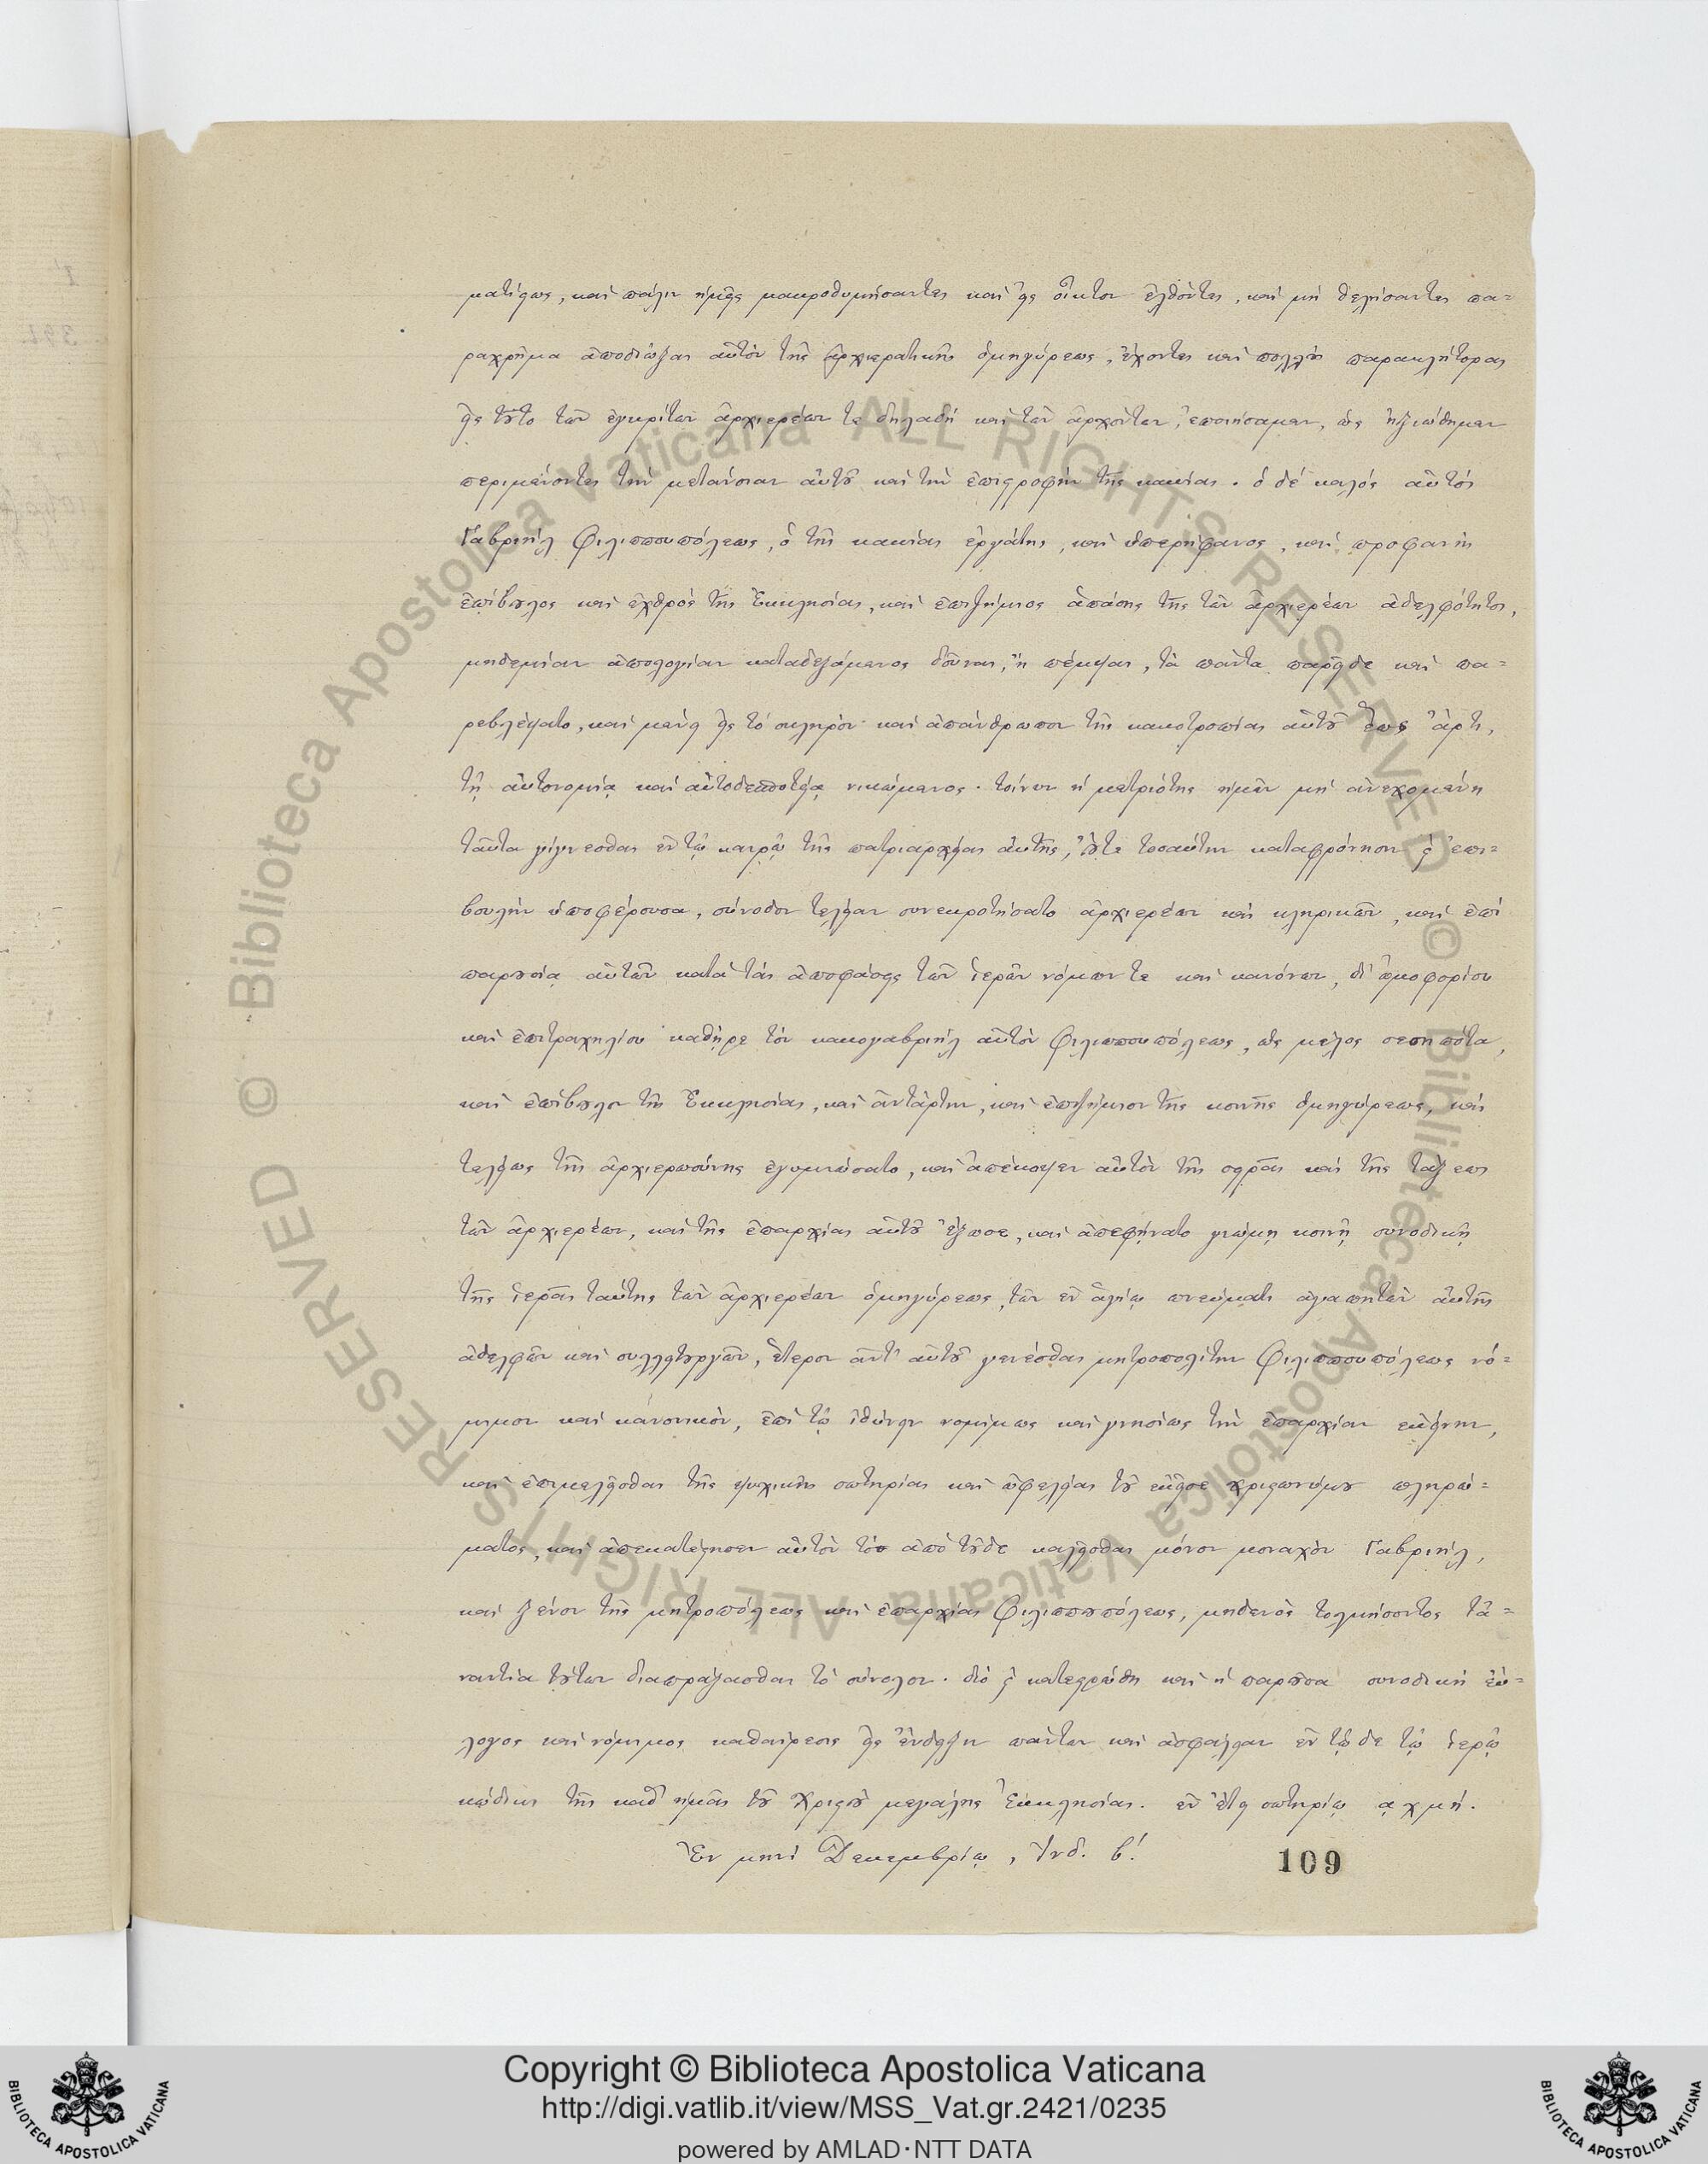 ματίσεως, καὶ πάλιν ἡμεῖς μακροθυμήσαντες καὶ εἰς οἶκτον ἐλθόντες, καὶ μὴ θελήσαντες πα-
ραχρῆμα ἀποδιῶξαι αὐτὸν τῆς ἀρχιερατικῆς ὁμηγύρεως, ἔχοντες καὶ πολλοὺς παρακλήτορας
εἰς τοῦτο τῶν ἐγκρίτων ἀρχιερέων τε δηλαδὴ καὶ τῶν ἀρχόντων, ἐποιήσαμεν, ὡς ἠξιώθημεν
περιμένοντες τὴν μετάνοιαν αὐτοῦ καὶ τὴν ἐπιστροφὴν τῆς κακίας. ὁ δὲ καλὸς αὐτὸς
Γαβριὴλ Φιλιππουπόλεως, ὁ τῆς κακίας ἐργάτης, καὶ ὑπερήφανος, καὶ προφανὴς
ἐπίβουλος καὶ ἐχθρὸς τῆς Ἐκκλησίας, καὶ ἐπιζήμιος ἁπάσης τῆς τῶν ἀρχιερέων ἀδελφότητος,
μηδεμίαν ἀπολογίαν καταδεξάμενος δοῦναι, ἢ πέμψαι, τὰ πάντα παρεῖδε καὶ πα-
ρεβλέψατο, καὶ μένει εἰς τὸ σκληρὸν καὶ ἀπάνθρωπον τῆς κακοτροπίας αὐτοῦ ἕως ἄρτι,
τῇ αὐτονομίᾳ καὶ αὐτοδεσποτείᾳ νικώμενος. τοίνυν ἡ μετριότης ἡμῶν μὴ ἀνεχομένη
ταῦτα γίγνεσθαι ἐν τῷ καιρῷ τῆς πατριαρχείας αὐτῆς, οὔτε τοσαύτην καταφρόνησιν ϗ ἐπι-
βουλὴν ὑποφέρουσα, σύνοδον τελείαν συνεκροτήσατο ἀρχιερέων καὶ κληρικῶν, καὶ ἐπὶ
παρουσίᾳ αὐτῶν κατὰ τὰς ἀποφάσεις τῶν ἱερῶν νόμων τε καὶ κανόνων, δι' ὠμοφορίου
καὶ ἐπιτραχηλίου καθῄρε τὸν κακογαβριὴλ αὐτὸν Φιλιππουπόλεως, ὡς μέλος σεσηπότα,
καὶ ἐπίβουλον τῆς Ἐκκλησίας, καὶ ἀντάρτην, καὶ ἐπιζήμιον τῆς κοινῆς ὁμηγύρεως, καὶ
τελείως τῆς ἀρχιερωσύνης ἐγυμνώσατο, καὶ ἀπέκοψεν αὐτὸν τῆς σειρᾶς καὶ τῆς τάξεως
τῶν ἀρχιερέων, καὶ τῆς ἐπαρχίας αὐτοῦ ἔξωσε, καὶ ἀπεφῄνατο γνώμῃ κοινῇ συνοδικῇ
τῆς ἱερᾶς ταύτης τῶν ἀρχιερέων ὁμηγύρεως, τῶν ἐν ἁγίῳ πνεύματι ἀγαπητῶν αὐτῆς
ἀδελφῶν καὶ συλλειτουργῶν, ἕτερον ἀντ' αὐτοῦ γενέσθαι μητροπολίτην Φιλιππουπόλεως νό-
μιμον καὶ κανονικὸν, ἐπὶ τῷ ἰθύνειν νομίμως καὶ γνησίως τὴν ἐπαρχίαν ἐκείνην,
καὶ ἐπιμελεῖσθαι τῆς ψυχικῆς σωτηρίας καὶ ὠφελείας τοῦ ἐκεῖσε χριστωνύμου πληρώ-
ματος, καὶ ἀπεκατέστησεν αὐτὸν τὸ ἀπὸ τοῦδε καλεῖσθαι μόνον μοναχὸν Γαβριὴλ,
καὶ ξένον τῆς μητροπόλεως καὶ ἐπαρχίας Φιλιππουπόλεως, μηδενὸς τολμήσοντος τἀ-
ναντία τούτων διαπράξασθαι τὸ σύνολον. διὸ ϗ κατεστρώθη καὶ ἡ παροῦσα συνοδικὴ εὔ-
λογος καὶ νόμιμος καθαίρεσις εἰς ἔνδειξιν πάντων καὶ ἀσφάλειαν ἐν τῷδε τῷ ἱερῷ
κώδικι τῆς καθ' ἡμᾶς τοῦ Χριστοῦ μεγάλης Ἐκκλησίας. ἐν ἔτει σωτηρίῳ αχμή.
Ἐν μηνὶ Δεκεμβρίῳ, Ἰνδ. β'.
109
Copyright © Biblioteca Apostolica Vaticana
http://digi.vatlib.it/view/MSS_Vat.gr.2421/0235
powered by AMLAD·NTT DATA
© Biblioteca Apostolica Vaticana ALL RIGHTS RESERVED
© Biblioteca Apostolica Vaticana ALL RIGHTS RESERVED
BIBLIOTECA APOSTOLICA VATICANA
BIBLIOTECA APOSTOLICA VATICANA